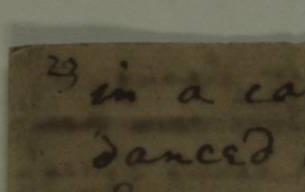 23 in a ca
danced